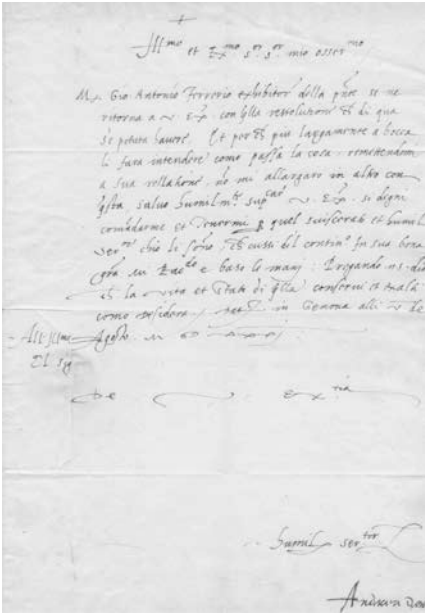 Ill^mo et Ex^mo s^or s^or mio osser^mo
M. Gio Antonio Ferrerio exhibitor della p̃nte se ne
ritorna a v. Ex. con q̃lla ressolutione ch̃ di qua
s'è potuta havere. Et per ch̃ piu largamente a bocca
li fara intendere como passa la cosa, remettendomi
a sua rellatione, nõ mi allargaro in altro con
q̃sta, salvo humilm^te sup^car v. Ex. si degni
comãdarme et tenermi quel suiscerato et humil
ser^re chio li sono, ch̃ cussi dil contin^o in sua bona
gr̃a mi e baso le mani: Pregando n.s. dio
ch̃ la vita et stato di q̃lla conservi et exalti
como desidera in Genova alli v de
Agosto
All Ill^mo
El sig
De V. Ex^tia
humil ser^tor
Andrea Dor